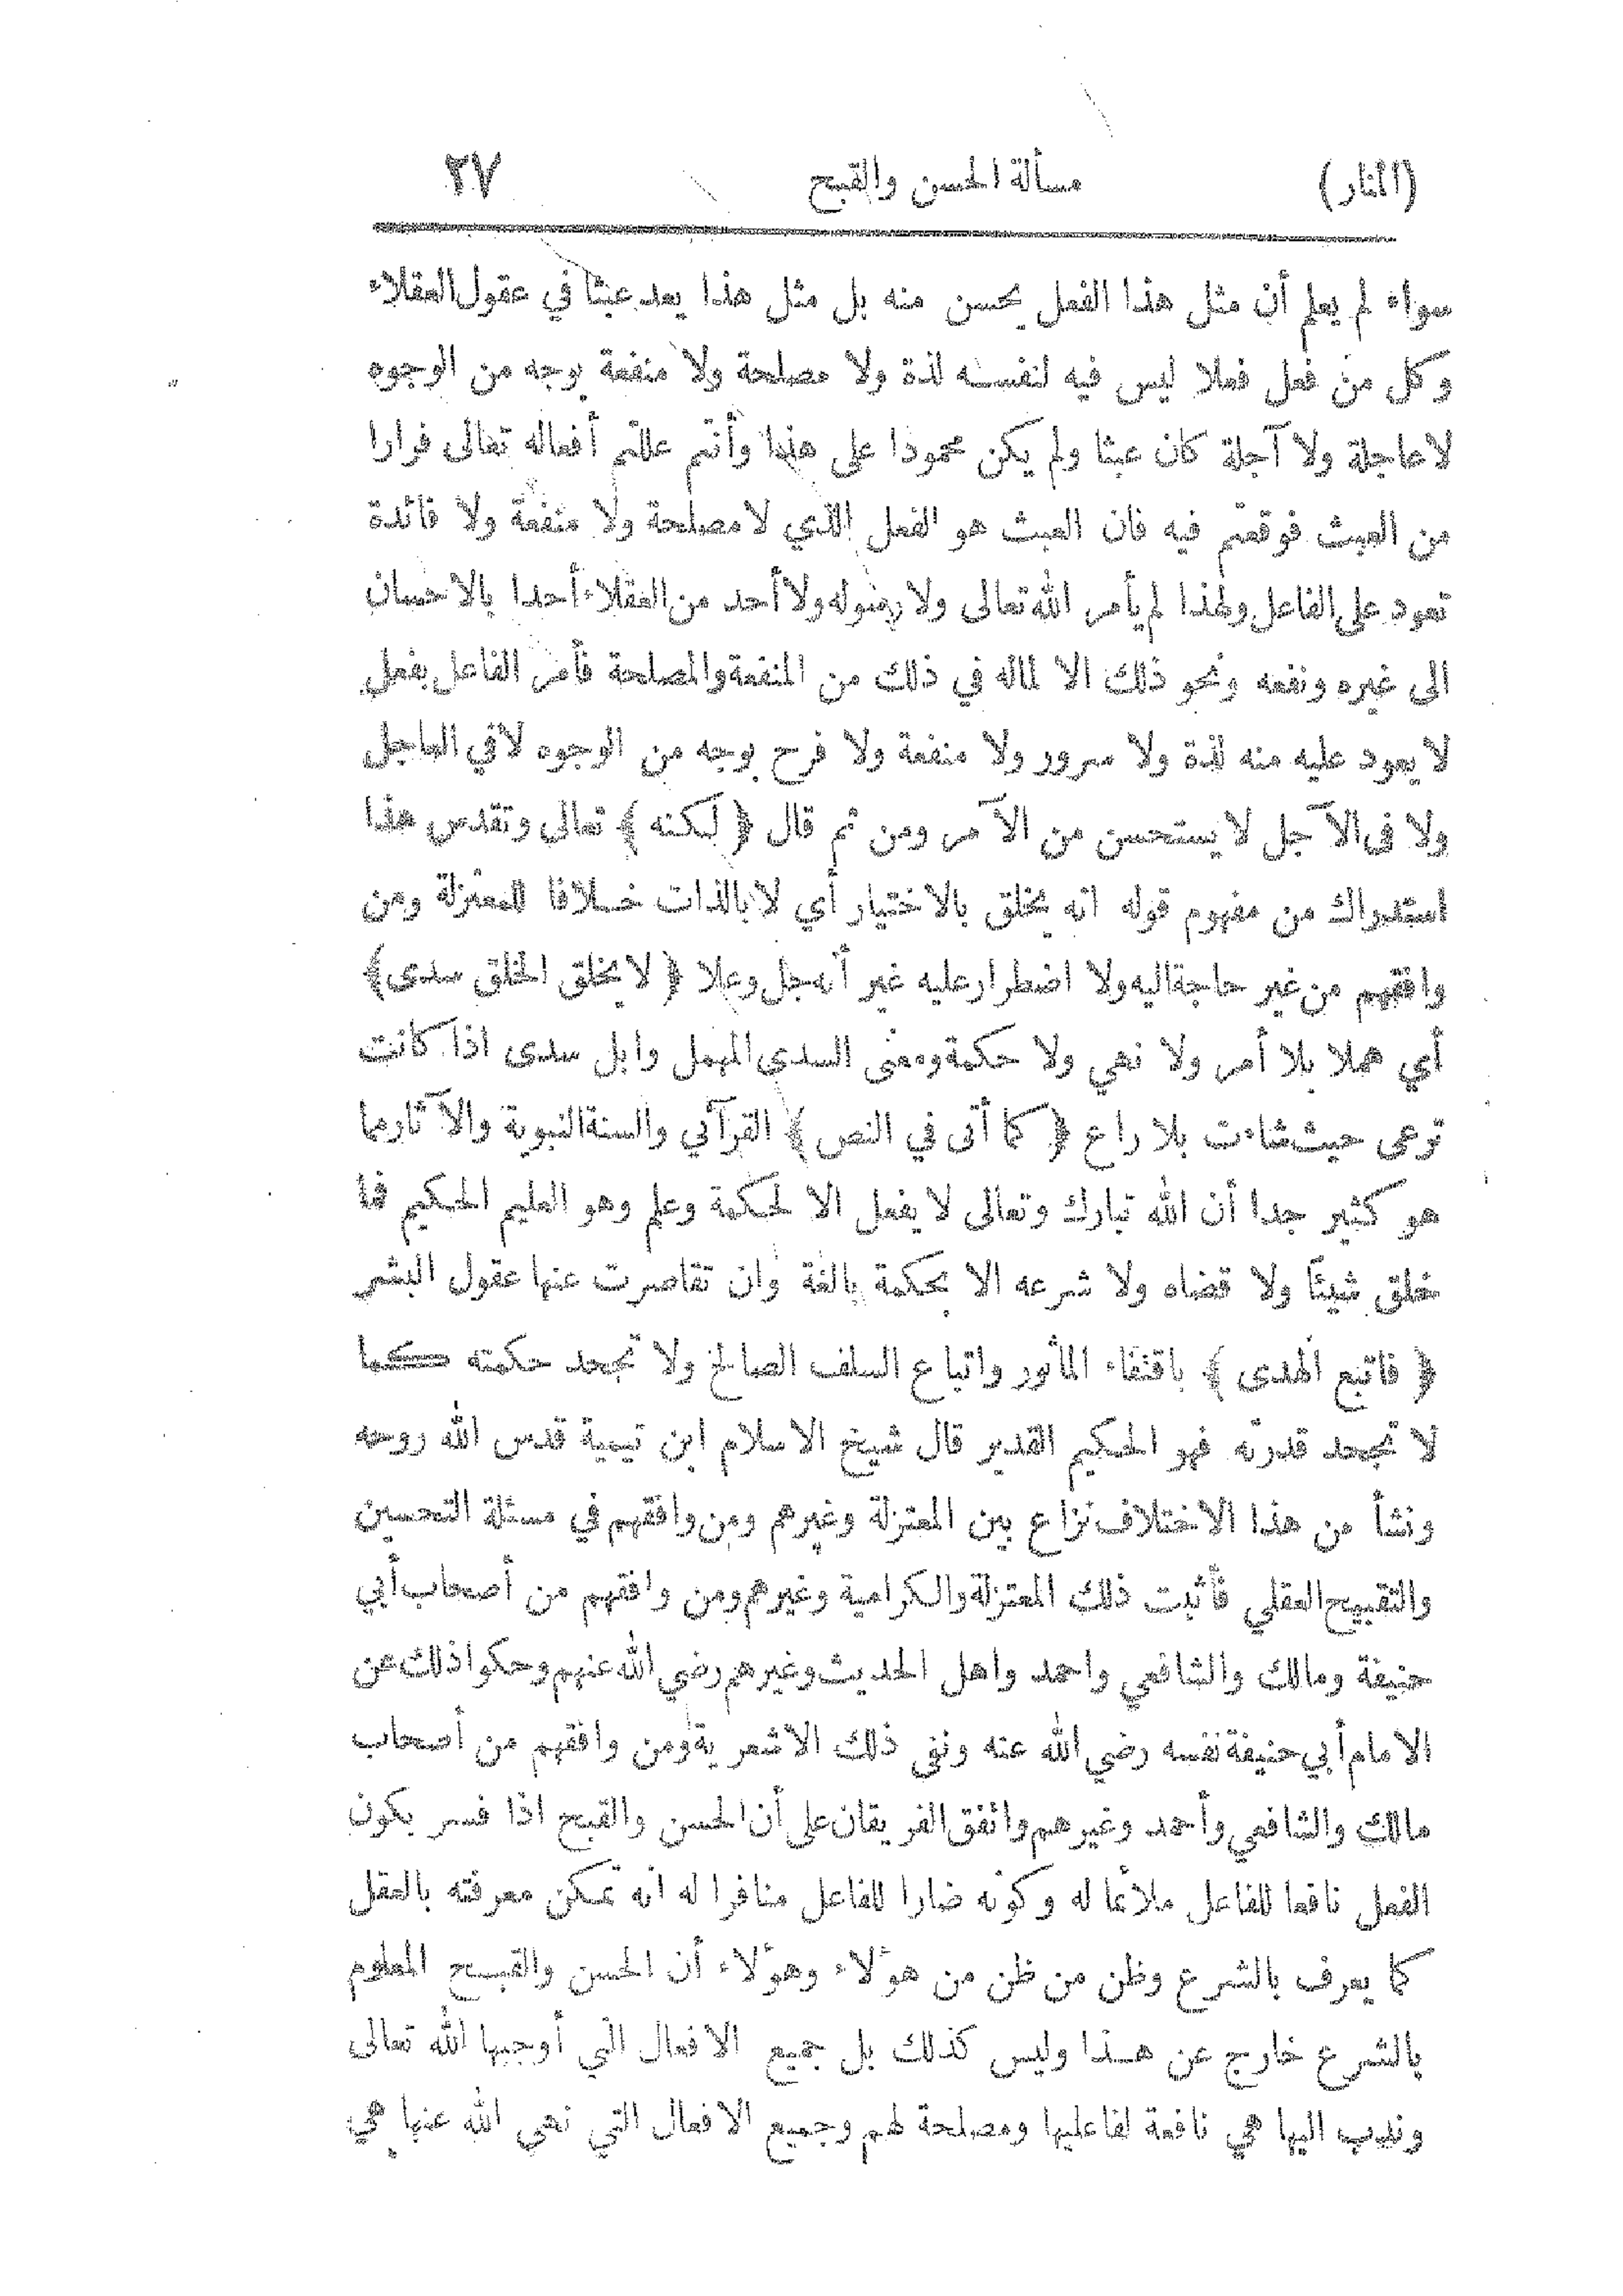 (المنار) مسألة الحسن والقبح ٢٧
سواء لم يعلم أن مثل هذا الفعل يحسن منه بل مثل هذا يعد عبثا في عقول العقلاء
وكل من فعل فعلا ليس فيه لنفسه لذة ولا مصلحة ولا منفعة بوجه من الوجوه
لا عاجلة ولا آجلة كان عبثا ولم يكن محمودا على هذا وأنتم عللتم أفعاله تعالى فرارا
من العبث فوقعتم فيه فان العبث هو الفعل الذي لا مصلحة ولا منفعة ولا فائدة
تعود على الفاعل ولهذا لم يأمر الله تعالى ولا رسوله ولا أحد من العقلاء أحدا بالاحسان
الى غيره ونفعه ونحو ذلك الا لماله في ذلك من المنفعة والمصلحة فأمر الفاعل بفعل
لا يعود عليه منه لذة ولا سرور ولا منفعة ولا فرح بوجه من الوجوه لا في العاجل
ولا فى الآجل لا يستحسن من الآمر ومن ثم قال ﴿ لكنه ﴾ تعالى وتقدس هذا
استدراك من مفهوم قوله انه يخلق بالاختيار أي لا بالذات خلافا للمعتزلة ومن
وافقهم من غير حاجة اليه ولا اضطرار عليه غير أنه جل وعلا ﴿ لا يخلق الخلق سدى ﴾
أي هملا بلا أمر ولا نهي ولا حكمة ومعنى السدى المهمل وابل سدى اذا كانت
ترعى حيث شاءت بلا راع ﴿ كما أتى في النص ﴾ القرآني والسنة النبوية والآثار مما
هو كثير جدا أن الله تبارك وتعالى لا يفعل الا لحكمة وعلم وهو العليم الحكيم فما
خلق شيئا ولا قضاه ولا شرعه الا بحكمة بالغة وان تقاصرت عنها عقول البشر
﴿ فاتبع الهدى ﴾ باقتفاء المأثور واتباع السلف الصالح ولا تجحد حكمته كما
لا تجحد قدرته فهو الحكيم القدير قال شيخ الاسلام ابن تيمية قدس الله روحه
ونشأ من هذا الاختلاف نزاع بين المعتزلة وغيرهم ومن وافقهم في مسئلة التحسين
والتقبيح العقلي فأثبت ذلك المعتزلة والكرامية وغيرهم ومن وافقهم من أصحاب أبي
حنيفة ومالك والشافعي واحمد واهل الحديث وغيرهم رضي الله عنهم وحكوا ذلك عن
الامام أبي حنيفة نفسه رضي الله عنه ونفى ذلك الاشعرية ومن وافقهم من أصحاب
مالك والشافعي وأحمد وغيرهم واتفق الفريقان على أن الحسن والقبح اذا فسر بكون
الفعل نافعا للفاعل ملائما له وكونه ضارا للفاعل منافرا له انه تمكن معرفته بالعقل
كما يعرف بالشرع وظن من ظن من هؤلاء وهؤلاء أن الحسن والقبح المعلوم
بالشرع خارج عن هذا وليس كذلك بل جميع الافعال التي أوجبها الله تعالى
وندب اليها هي نافعة لفاعليها ومصلحة لهم وجميع الافعال التي نهى الله عنها هي